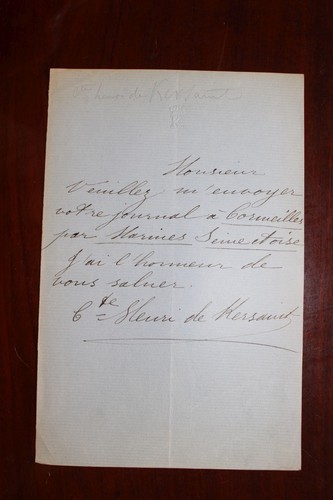 Henri de Kersaint
Monsieur
Veuillez m'envoyer
votre journal à Cormeilles
par Marines Seine et oise
J'ai l'honneur de
vous saluer.
Cte Henri de Kersaint